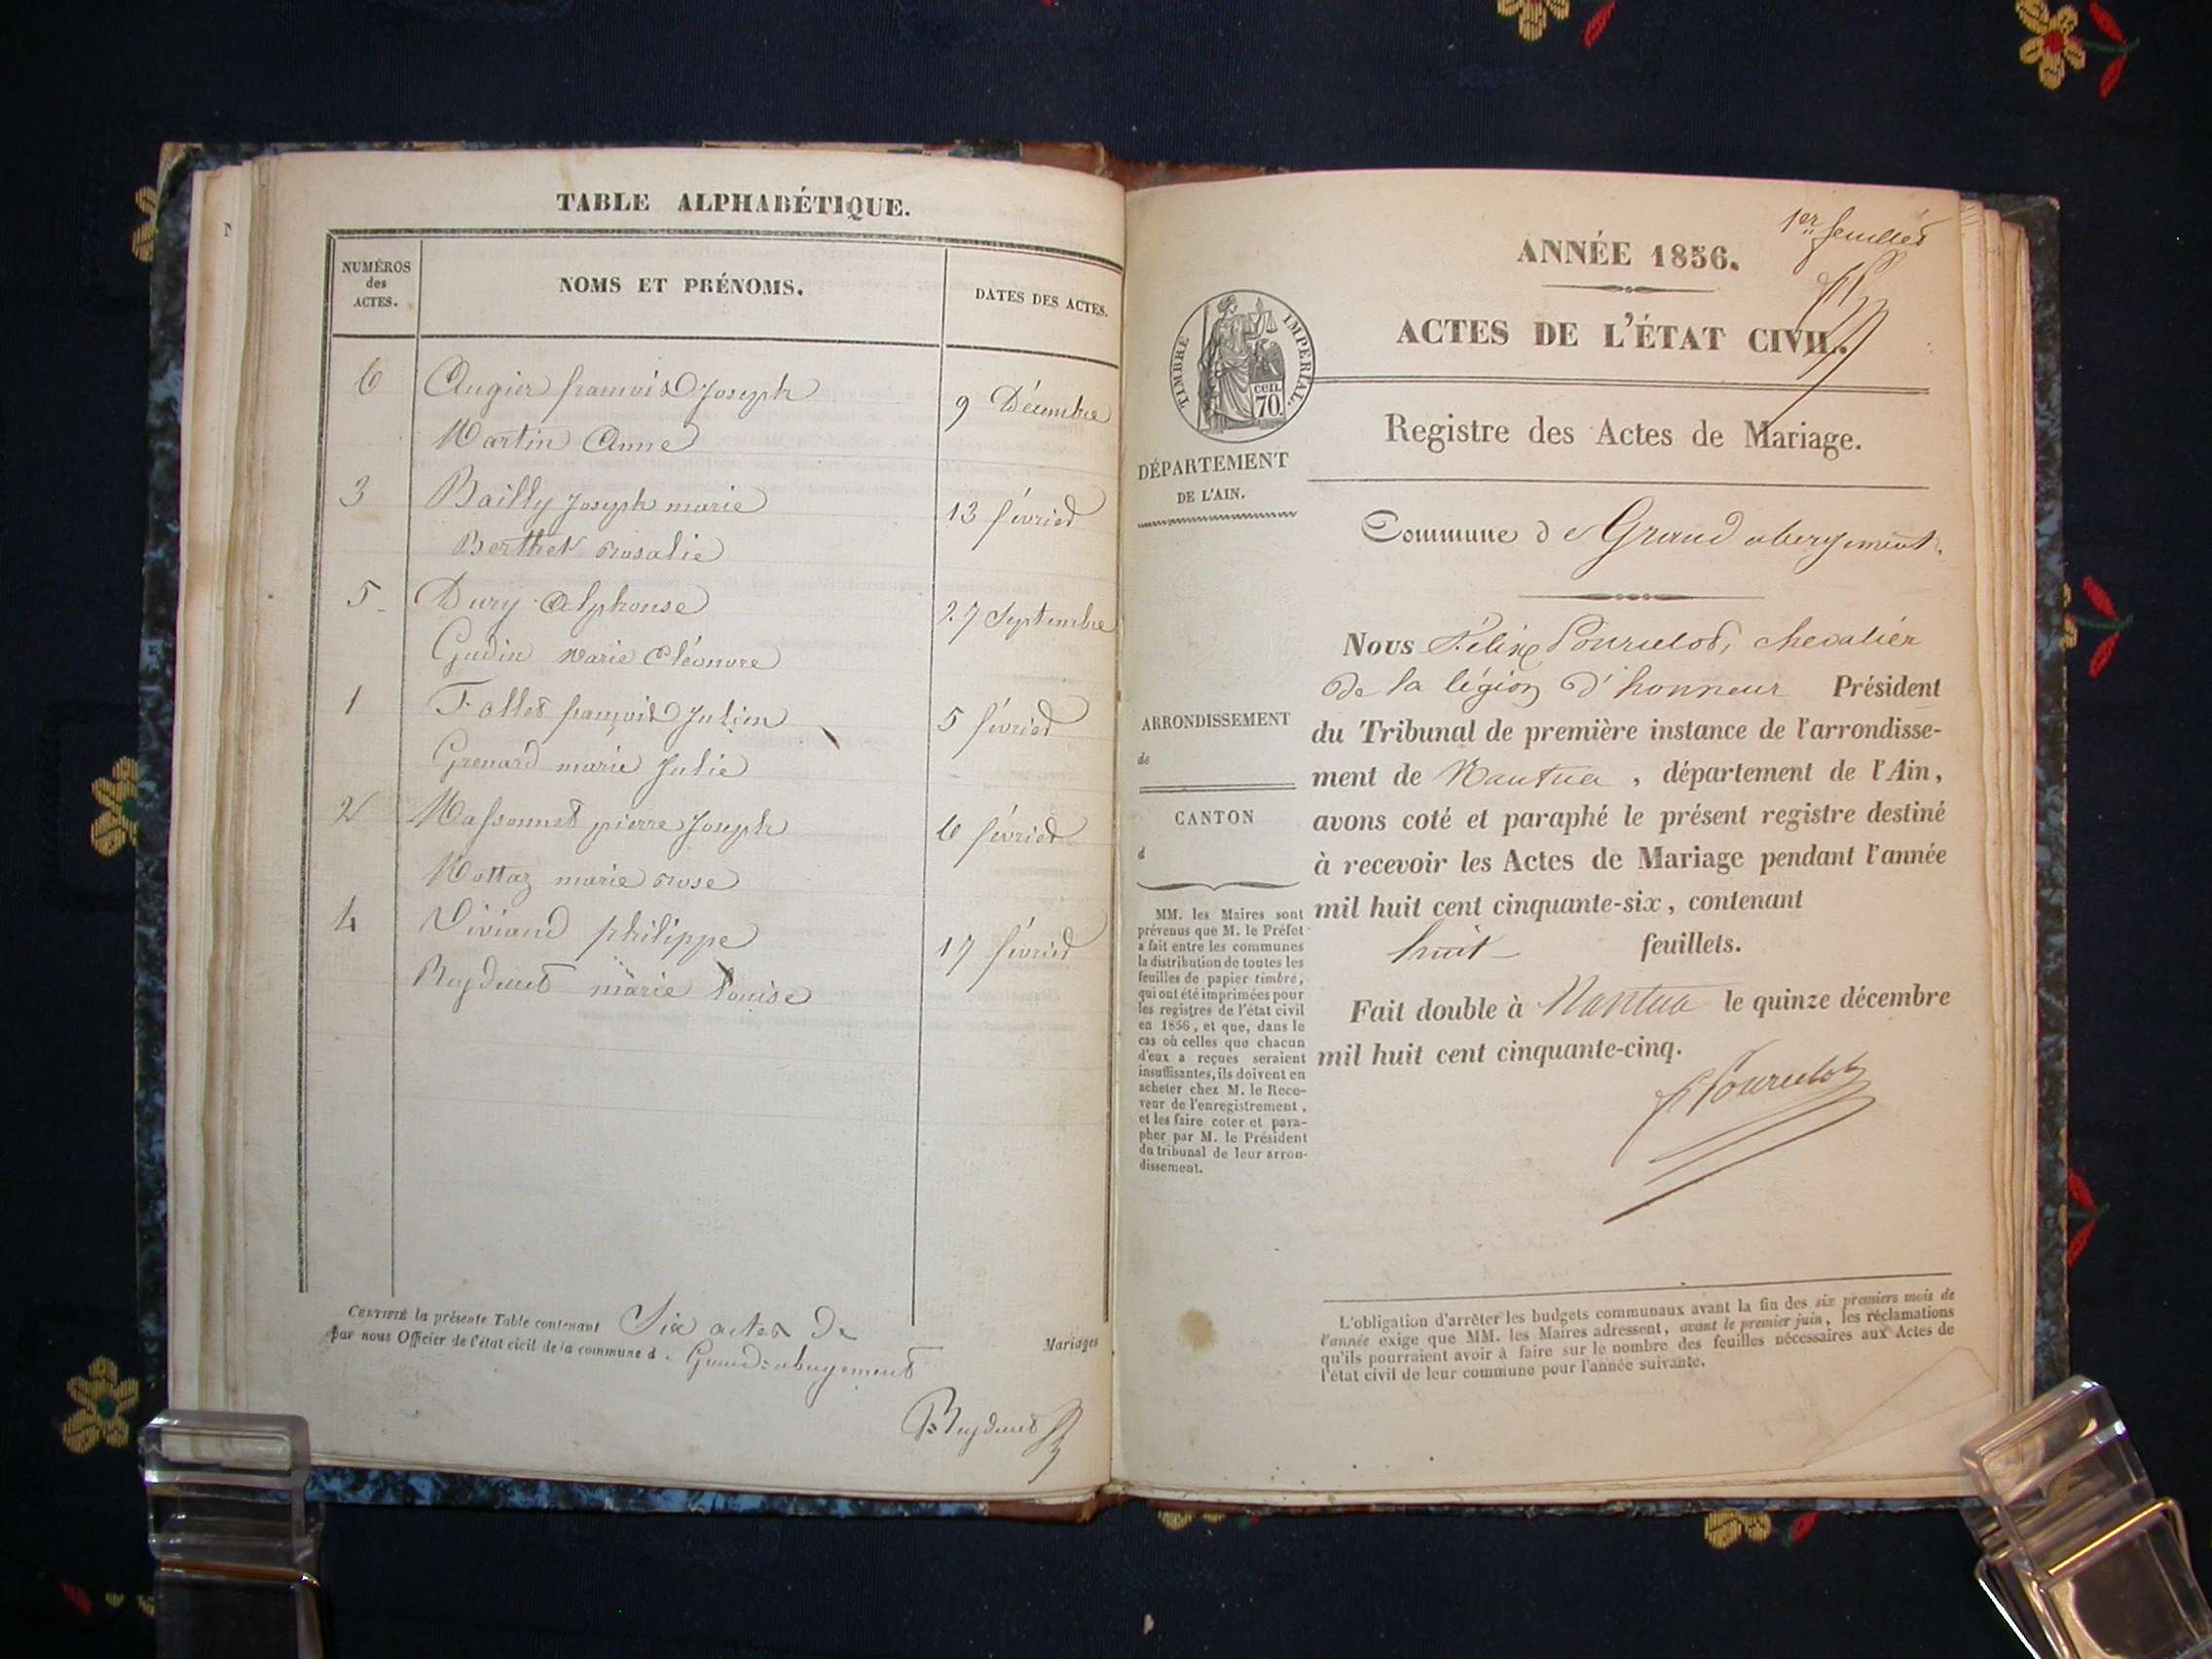 TABLE ALPHABÉTIQUE.
NUMÉROS
des
ACTES.
NOMS ET PRÉNOMS.
DATES DES ACTES.
6 Augier françois Joseph 9 Décembre
Martin Anne
3 Bailly Joseph marie 13 février
Berthet rosalie
5 Dury Alphonse 27 Septembre
Gudin Marie Eléonore
1 Follet françois Julien 5 février
Grenard marie Julie
2 Massonnet pierre Joseph 6 février
Mottaz marie rose
4 Viviand philippe 17 février
Reydellet marie Louise
CERTIFIÉ la présente Table contenant Six actes de Mariages
par nous Officier de l'état civil de la commune d e Grand-abergement
Reydellet
1er feuillet
ANNÉE 1856.
ACTES DE L'ÉTAT CIVIL.
TIMBRE IMPÉRIAL.
cen.
70.
Registre des Actes de Mariage.
DÉPARTEMENT
DE L'AIN.
Commune de Grand abergement.
Nous Félix Pourcelot, chevalier
de la légion d'honneur Président
du Tribunal de première instance de l'arrondisse-
ment de Nantua, département de l'Ain,
avons coté et paraphé le présent registre destiné
à recevoir les Actes de Mariage pendant l'année
mil huit cent cinquante-six, contenant
huit feuillets.
Fait double à Nantua le quinze décembre
mil huit cent cinquante-cinq.
Pourcelot
ARRONDISSEMENT
de
CANTON
d
MM. les Maires sont
prévenus que M. le Préfet
a fait entre les communes
la distribution de toutes les
feuilles de papier timbré,
qui ont été imprimées pour
les registres de l'état civil
en 1856, et que, dans le
cas où celles que chacun
d'eux a reçues seraient
insuffisantes, ils doivent en
acheter chez M. le Rece-
veur de l'enregistrement,
et les faire coter et para-
pher par M. le Président
du tribunal de leur arron-
dissement.
L'obligation d'arrêter les budgets communaux avant la fin des six premiers mois de
l'année exige que MM. les Maires adressent, avant le premier juin, les réclamations
qu'ils pourraient avoir à faire sur le nombre des feuilles nécessaires aux Actes de
l'état civil de leur commune pour l'année suivante.